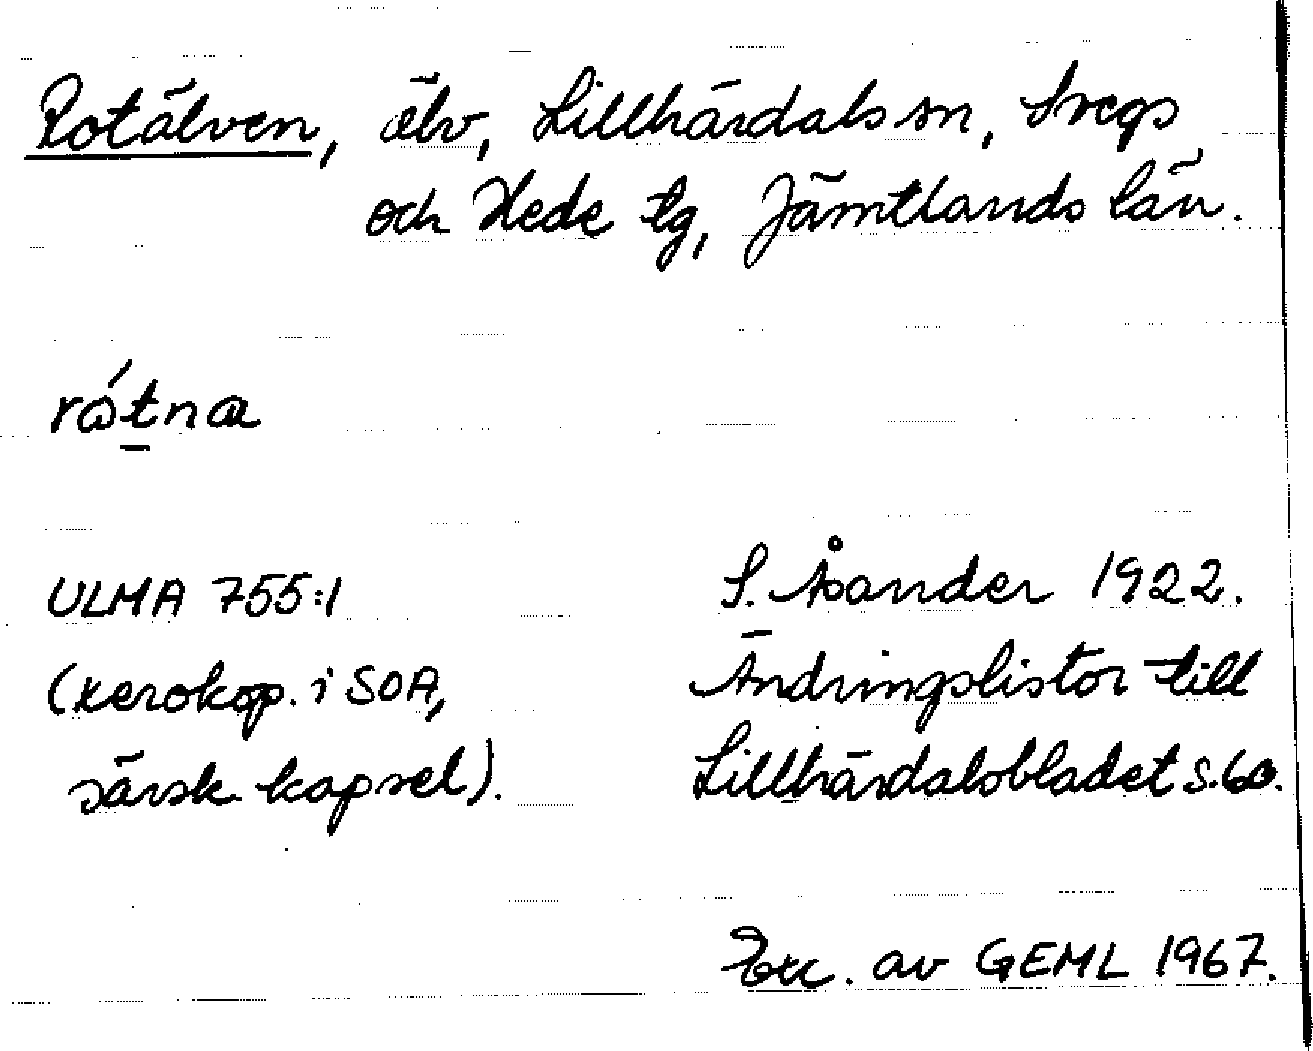 Rotälven, älv, Lillhärdals sn, Svegs
och Hede tg, Jämtlands län.
rátnæ
ULMA 755:1
S. Åsander 1922.
(xerokop. i SOA,
Ändringslistor till
särsk. kapsel).
Lillhärdalsbladet s. 60.
Exc. av GEML 1967.